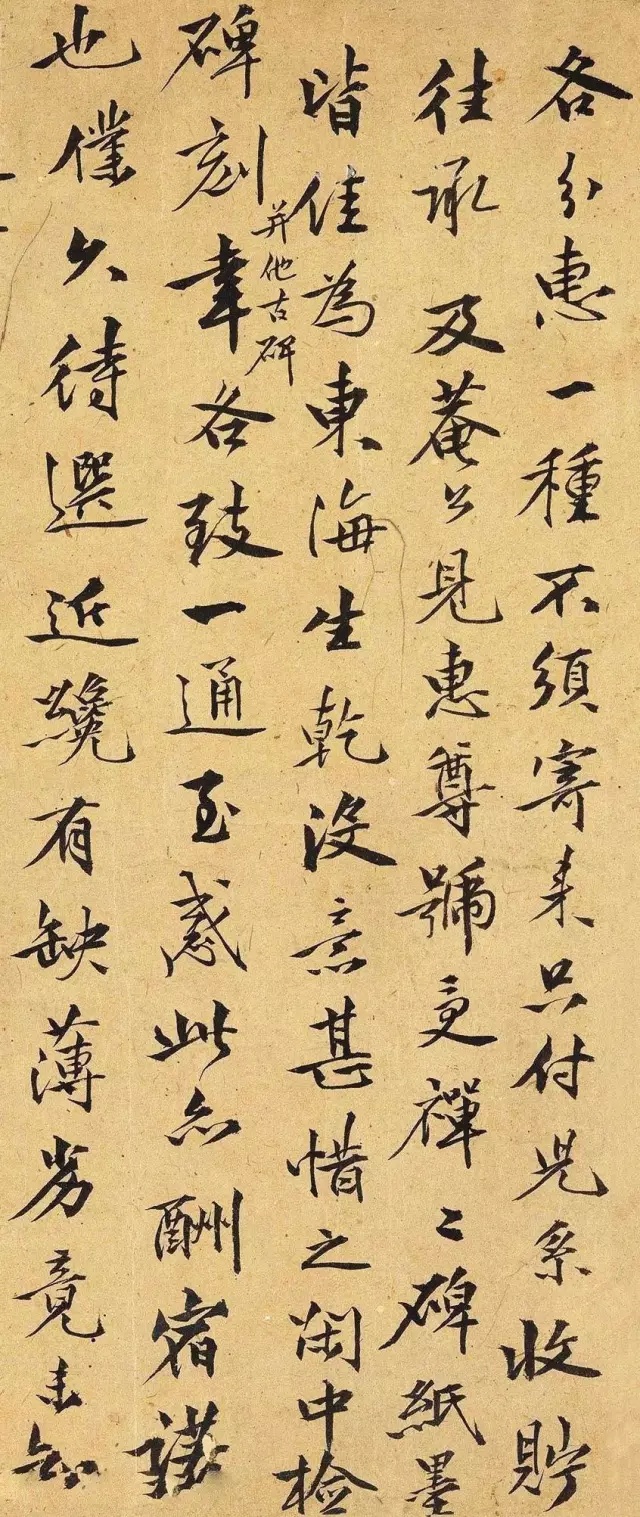 各分惠一種不須寄來只付兒系收貯
往承及菴公見惠尊號受禪二碑紙墨
皆佳為東海生乾沒意甚惜之閑中檢
碑刻幸各致一通至感此亦酬宿諾
并他古碑
也僕久待選近纔有缺薄劣竟未知